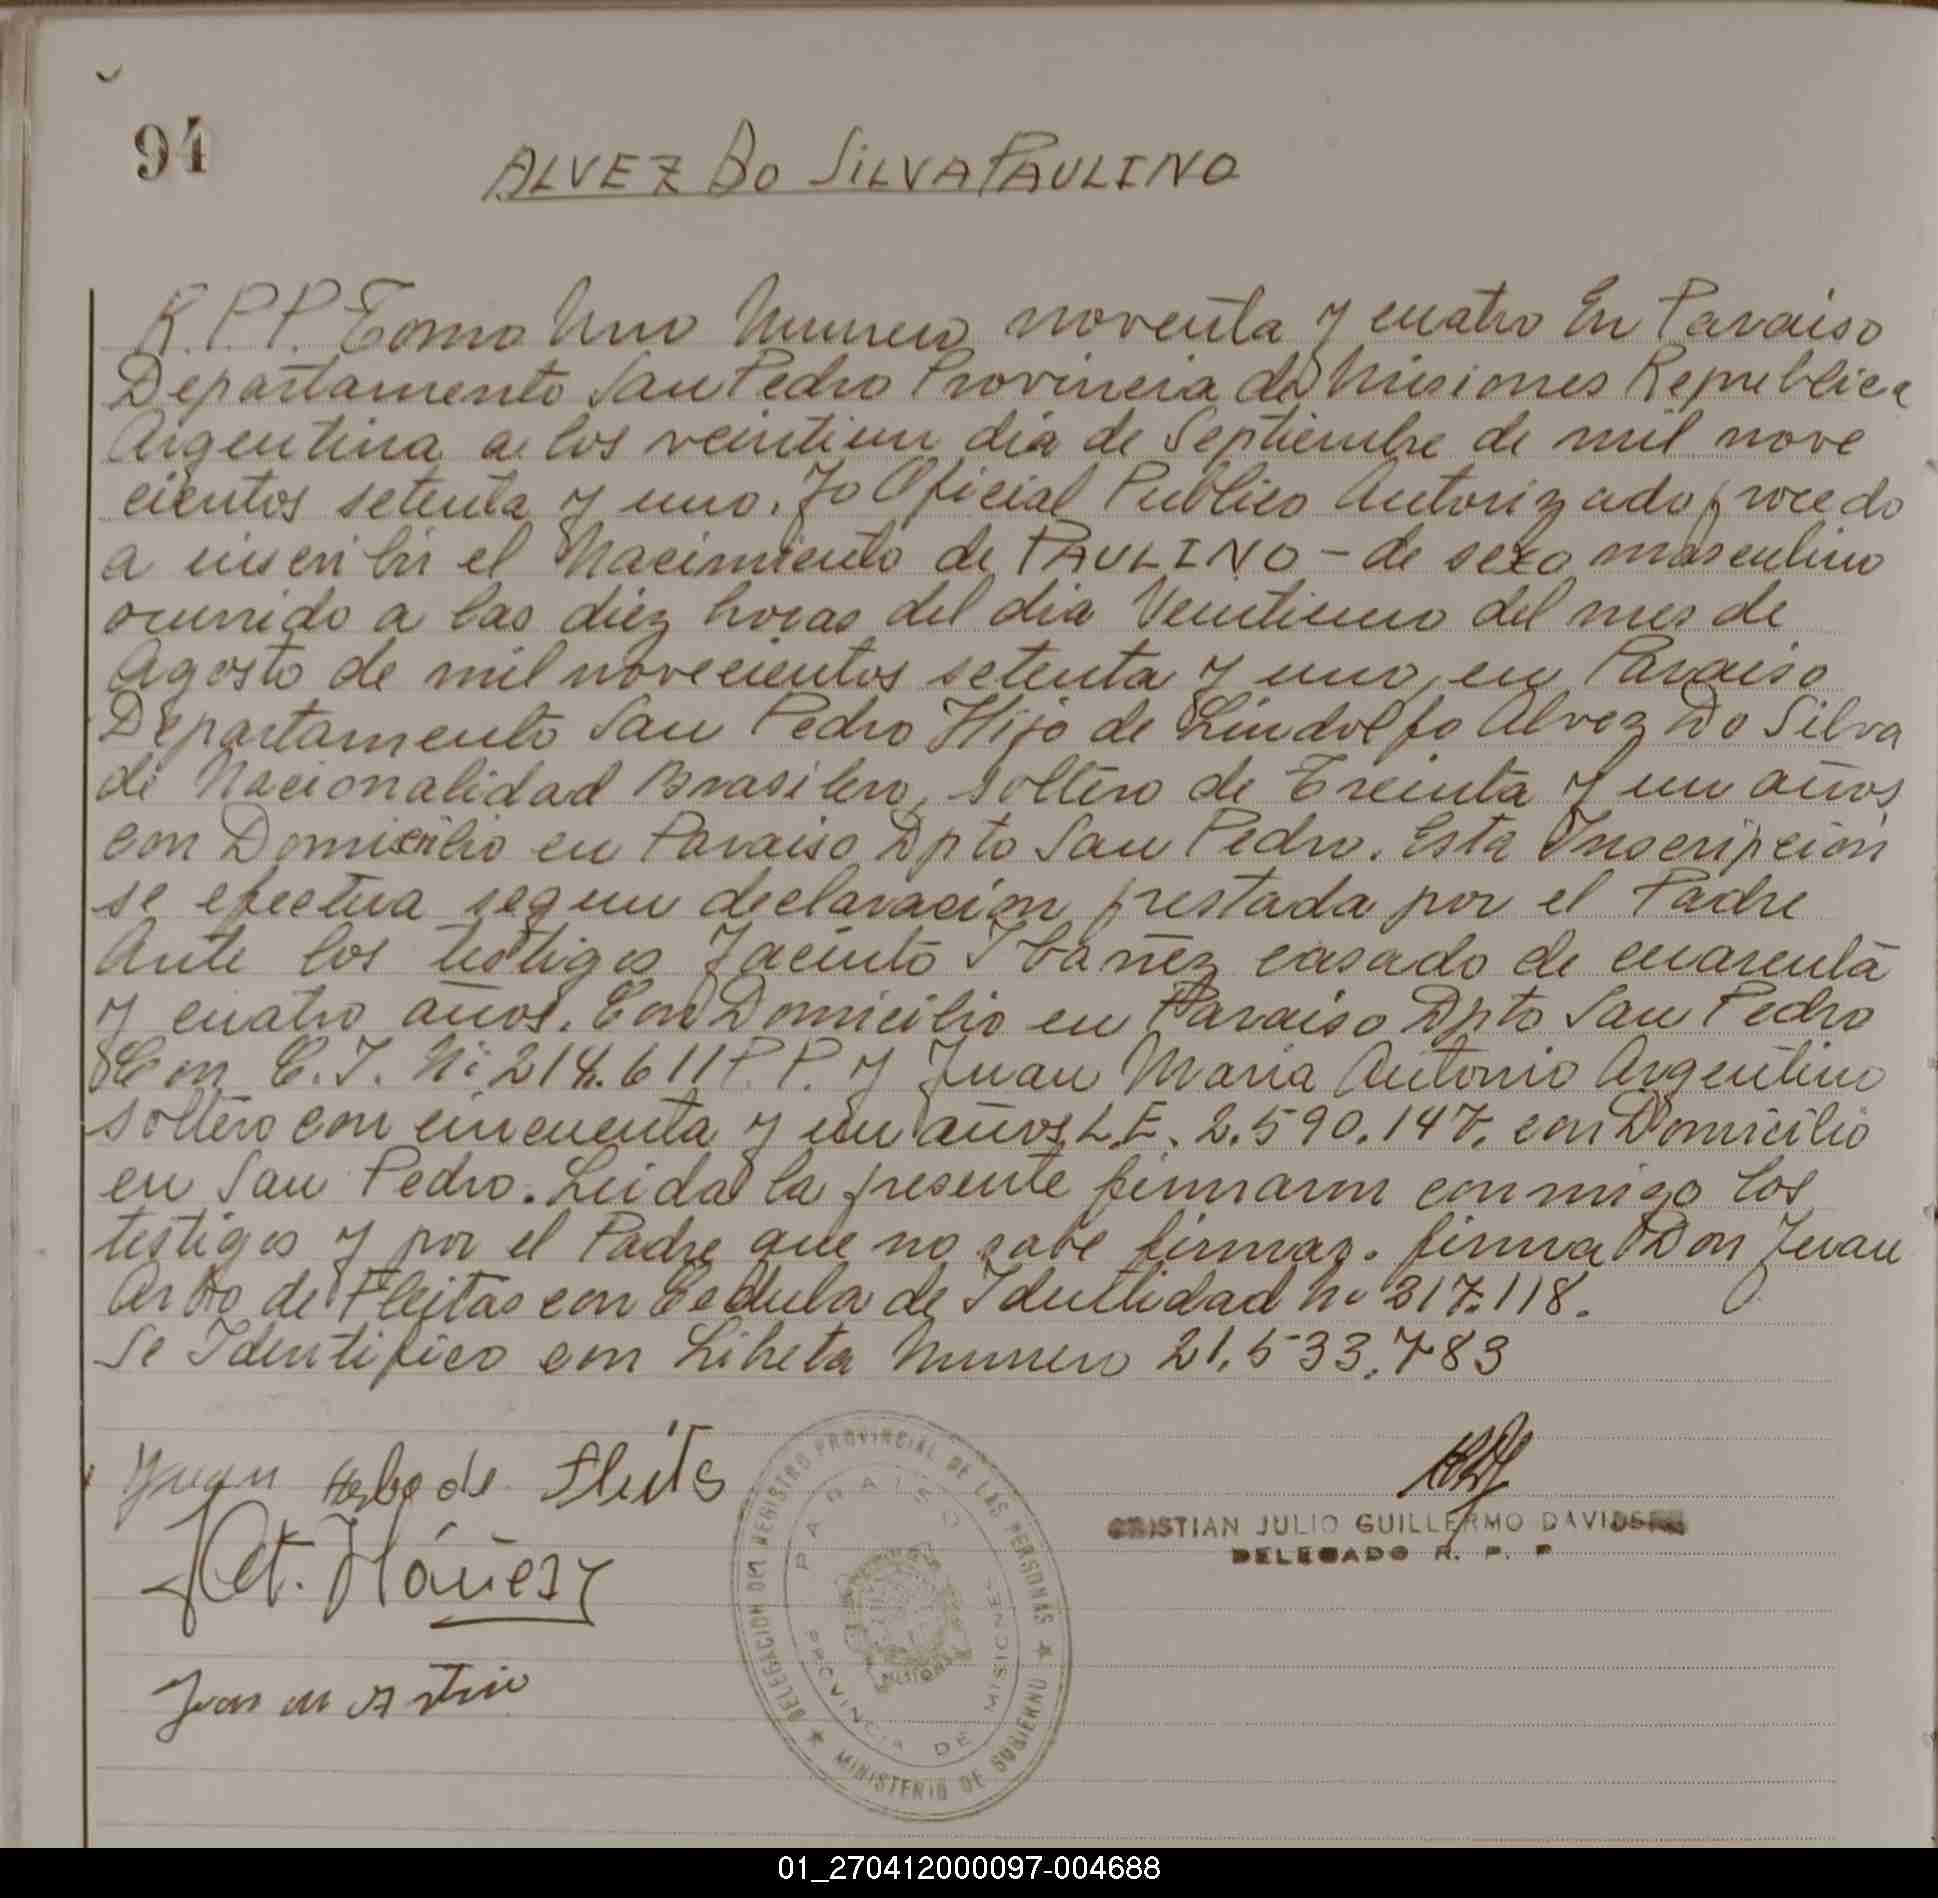 94
ALVEZ DO SILVA PAULINO
R.P.P. Tomo Uno Numero noventa y cuatro En Paraiso
Departamento San Pedro Provincia de Misiones Republica
Argentina a los veintiun dia de Septiembre de mil nove
cientos setenta y uno. Yo Oficial Publico Autorizado procedo
a inscribir el Nacimiento de PAULINO - de sexo masculino
ocurrido a las diez horas del dia Veintiuno del mes de
Agosto de mil novecientos setenta y uno, en Paraiso
Departamento San Pedro Hijo de Lindolfo Alvez Do Silva
de Nacionalidad Brasilero, soltero de Treinta y un años
con Domicilio en Paraiso Dpto San Pedro. Esta Inscripcion
se efectua segun declaracion prestada por el Padre
Ante los testigos Jacinto Ibañez casado de cuarenta
y cuatro años. Con Domicilio en Paraiso Dpto San Pedro
Con C.I. Nº 214.611 P.P. y Juan Maria Antonio Argentino
soltero con cincuenta y un años L.E. 2.590.147. con Domicilio
en San Pedro. Leida la presente firmaron conmigo los
testigos y por el Padre que no sabe firmar. firma Don Juan
de Fleitas con Cedula de Identidad Nº 317.118.
Se Identifico con Libreta Numero 21.533.783
Juan de Fleits
Ibáñez
Juan
DELEGACION DEL REGISTRO PROVINCIAL DE LAS PERSONAS ★ MINISTERIO DE GOBIERNO ★
PARAISO
PROVINCIA DE MISIONES
CRISTIAN JULIO GUILLERMO DAVIDSEN
DELEGADO R. P. P.
01_270412000097-004688